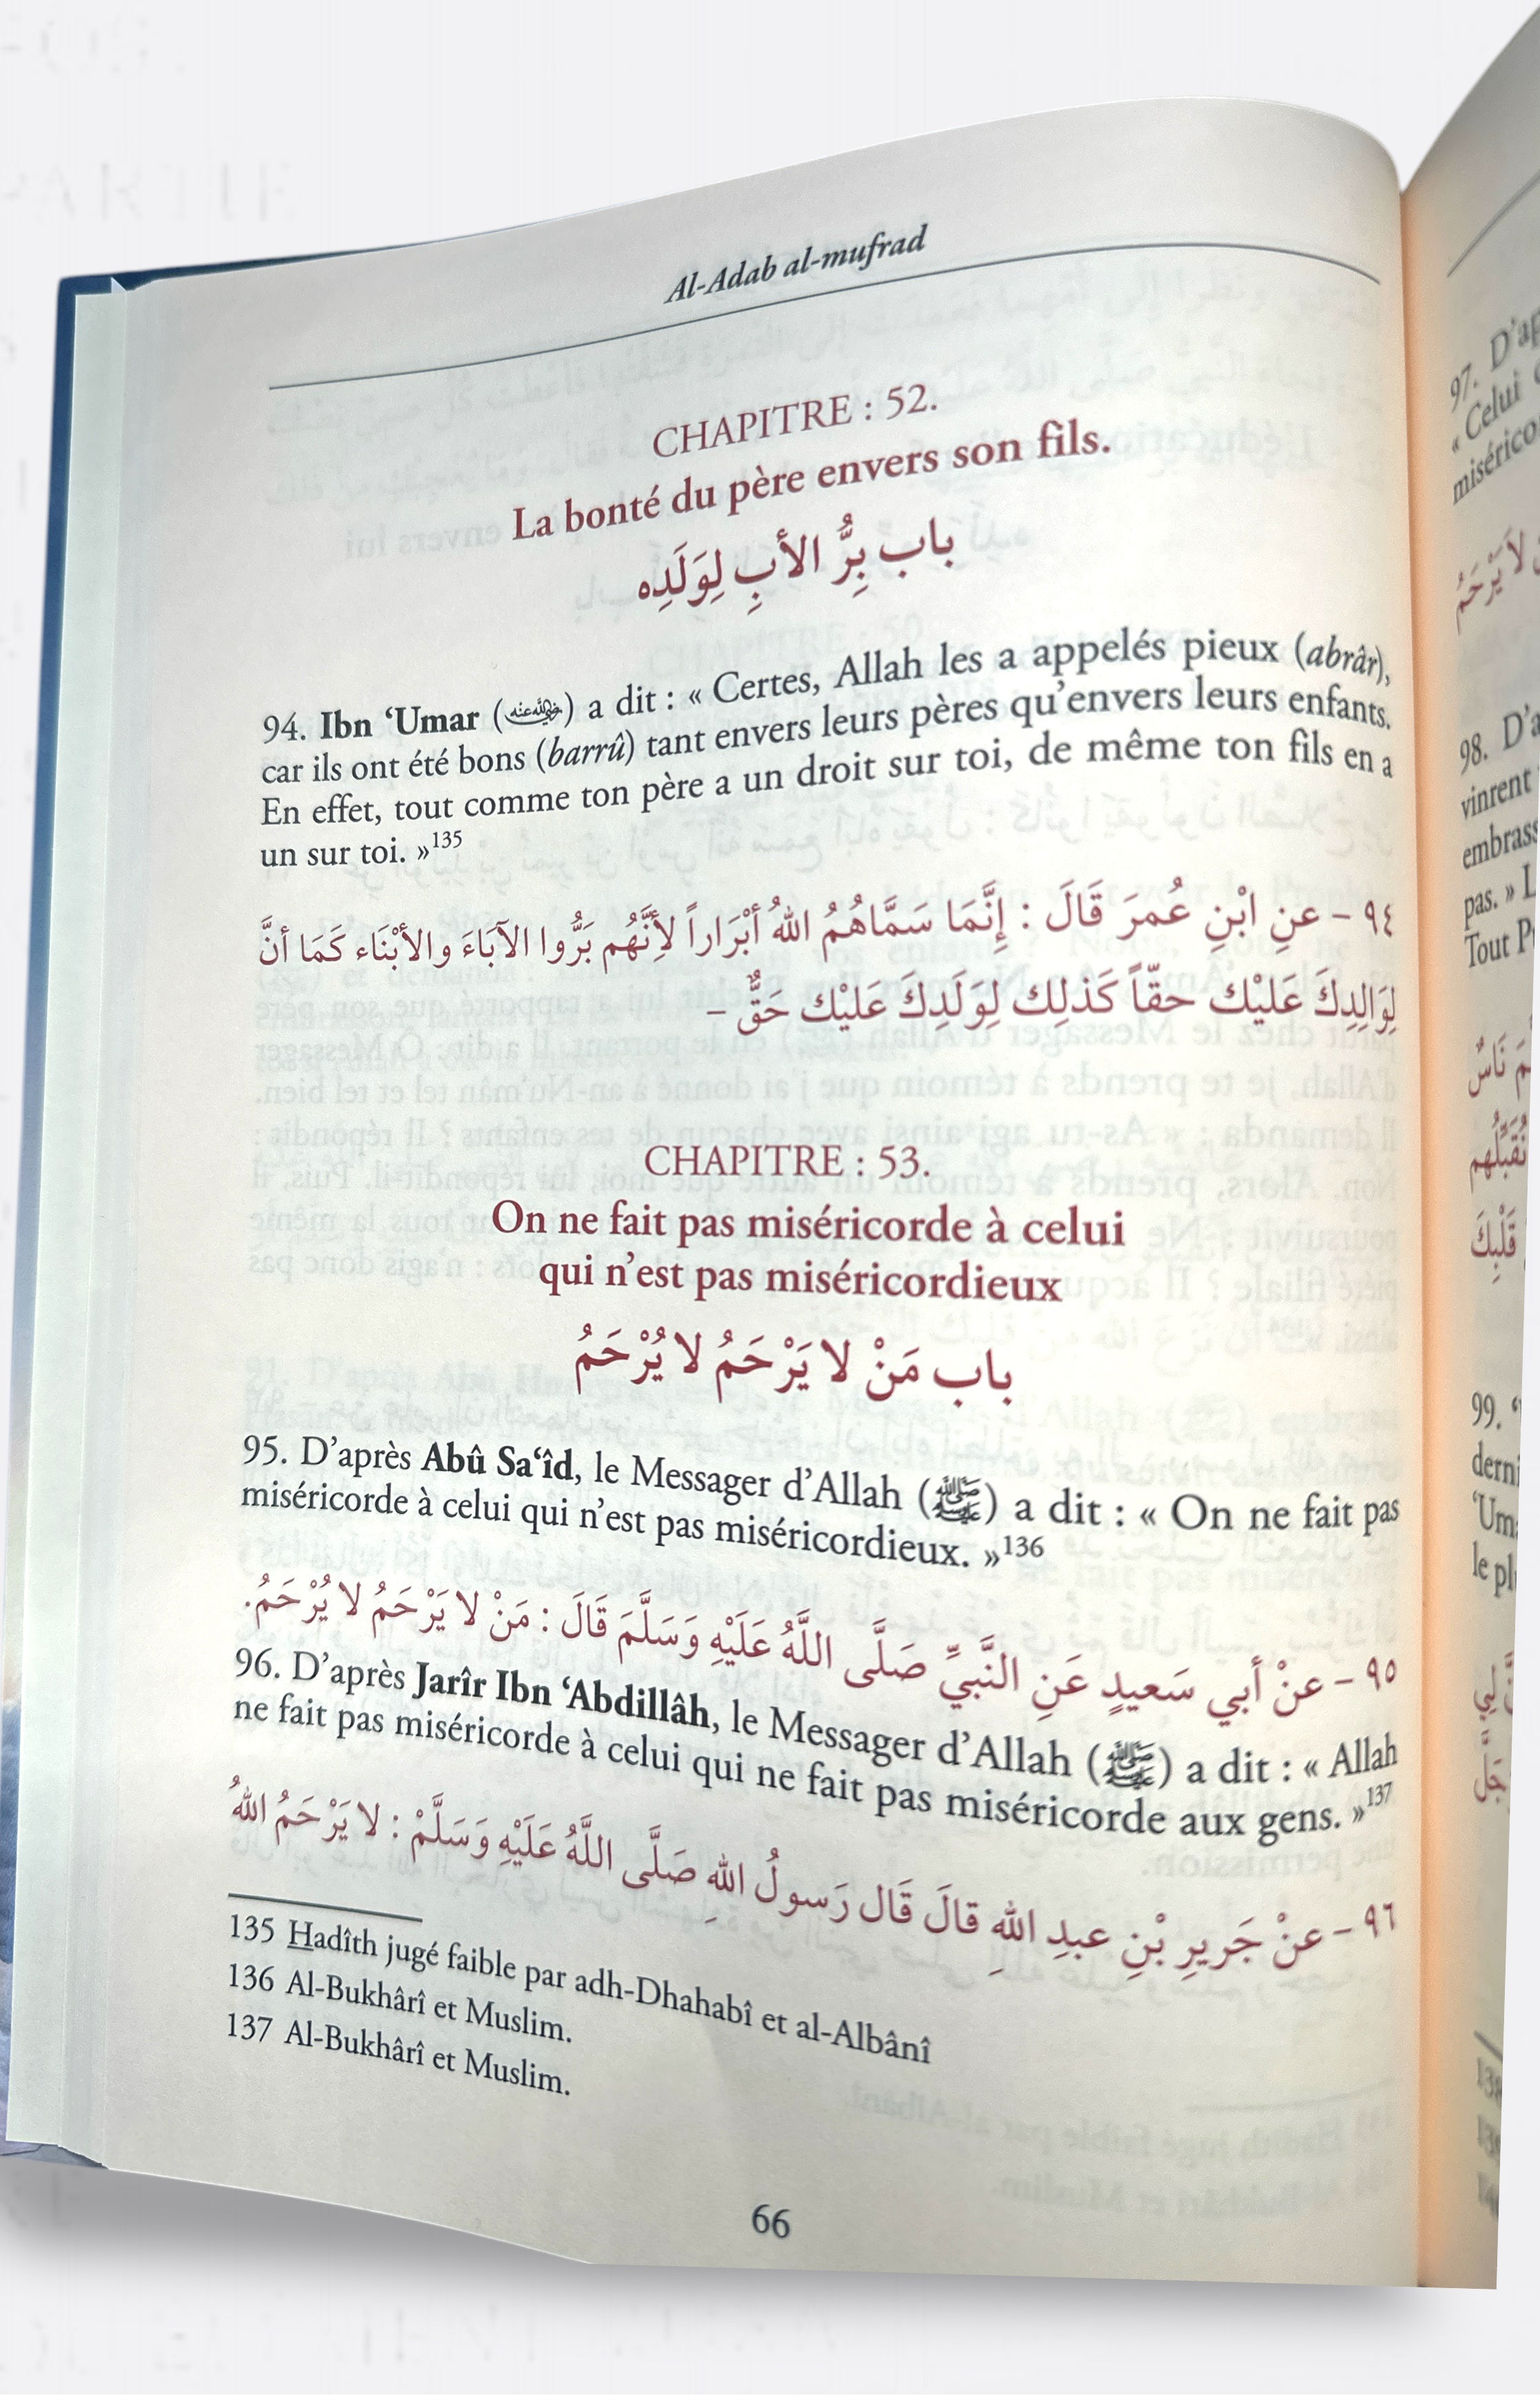 Al-Adab al-mufrad
CHAPITRE : 52.
La bonté du père envers son fils.
باب بِرُّ الأبِ لِوَلَدِه
94. Ibn ‘Umar (رضي الله عنه) a dit : « Certes, Allah les a appelés pieux (abrâr),
car ils ont été bons (barrû) tant envers leurs pères qu’envers leurs enfants.
En effet, tout comme ton père a un droit sur toi, de même ton fils en a
un sur toi. »135
٩٤ – عنِ ابْنِ عُمرَ قَالَ : إِنَّمَا سَمَّاهُمُ اللهُ أبْرَاراً لأِنَّهُم بَرُّوا الآبَاءَ والأبْنَاء كَمَا أنَّ
لِوَالِدِكَ عَليْك حقّاً كَذلِك لِوَلَدِكَ عَليْك حَقٌّ –
CHAPITRE : 53.
On ne fait pas miséricorde à celui
qui n’est pas miséricordieux
باب مَنْ لا يَرْحَمُ لا يُرْحَمُ
95. D’après Abû Sa‘îd, le Messager d’Allah (ﷺ) a dit : « On ne fait pas
miséricorde à celui qui n’est pas miséricordieux. »136
٩٥ – عنْ أبي سَعيدٍ عَنِ النَّبيِّ صَلَّى اللَّهُ عَلَيْهِ وَسَلَّمَ قَالَ : مَنْ لا يَرْحَمُ لا يُرْحَمُ.
96. D’après Jarîr Ibn ‘Abdillâh, le Messager d’Allah (ﷺ) a dit : « Allah
ne fait pas miséricorde à celui qui ne fait pas miséricorde aux gens. »137
٩٦ – عنْ جَريرِ بْنِ عبدِ اللهِ قالَ قَال رَسولُ اللهِ صَلَّى اللَّهُ عَلَيْهِ وَسَلَّمْ : لا يَرْحَمُ اللهُ
135 Hadîth jugé faible par adh-Dhahabî et al-Albânî
136 Al-Bukhârî et Muslim.
137 Al-Bukhârî et Muslim.
66
97. D’ap
« Celui
miserico
98. D’a
vinrent
embrass
pas. » L
Tout P
نُقَبِّلُهم
قَلْبِكَ
99.
derni
‘Um
le pl